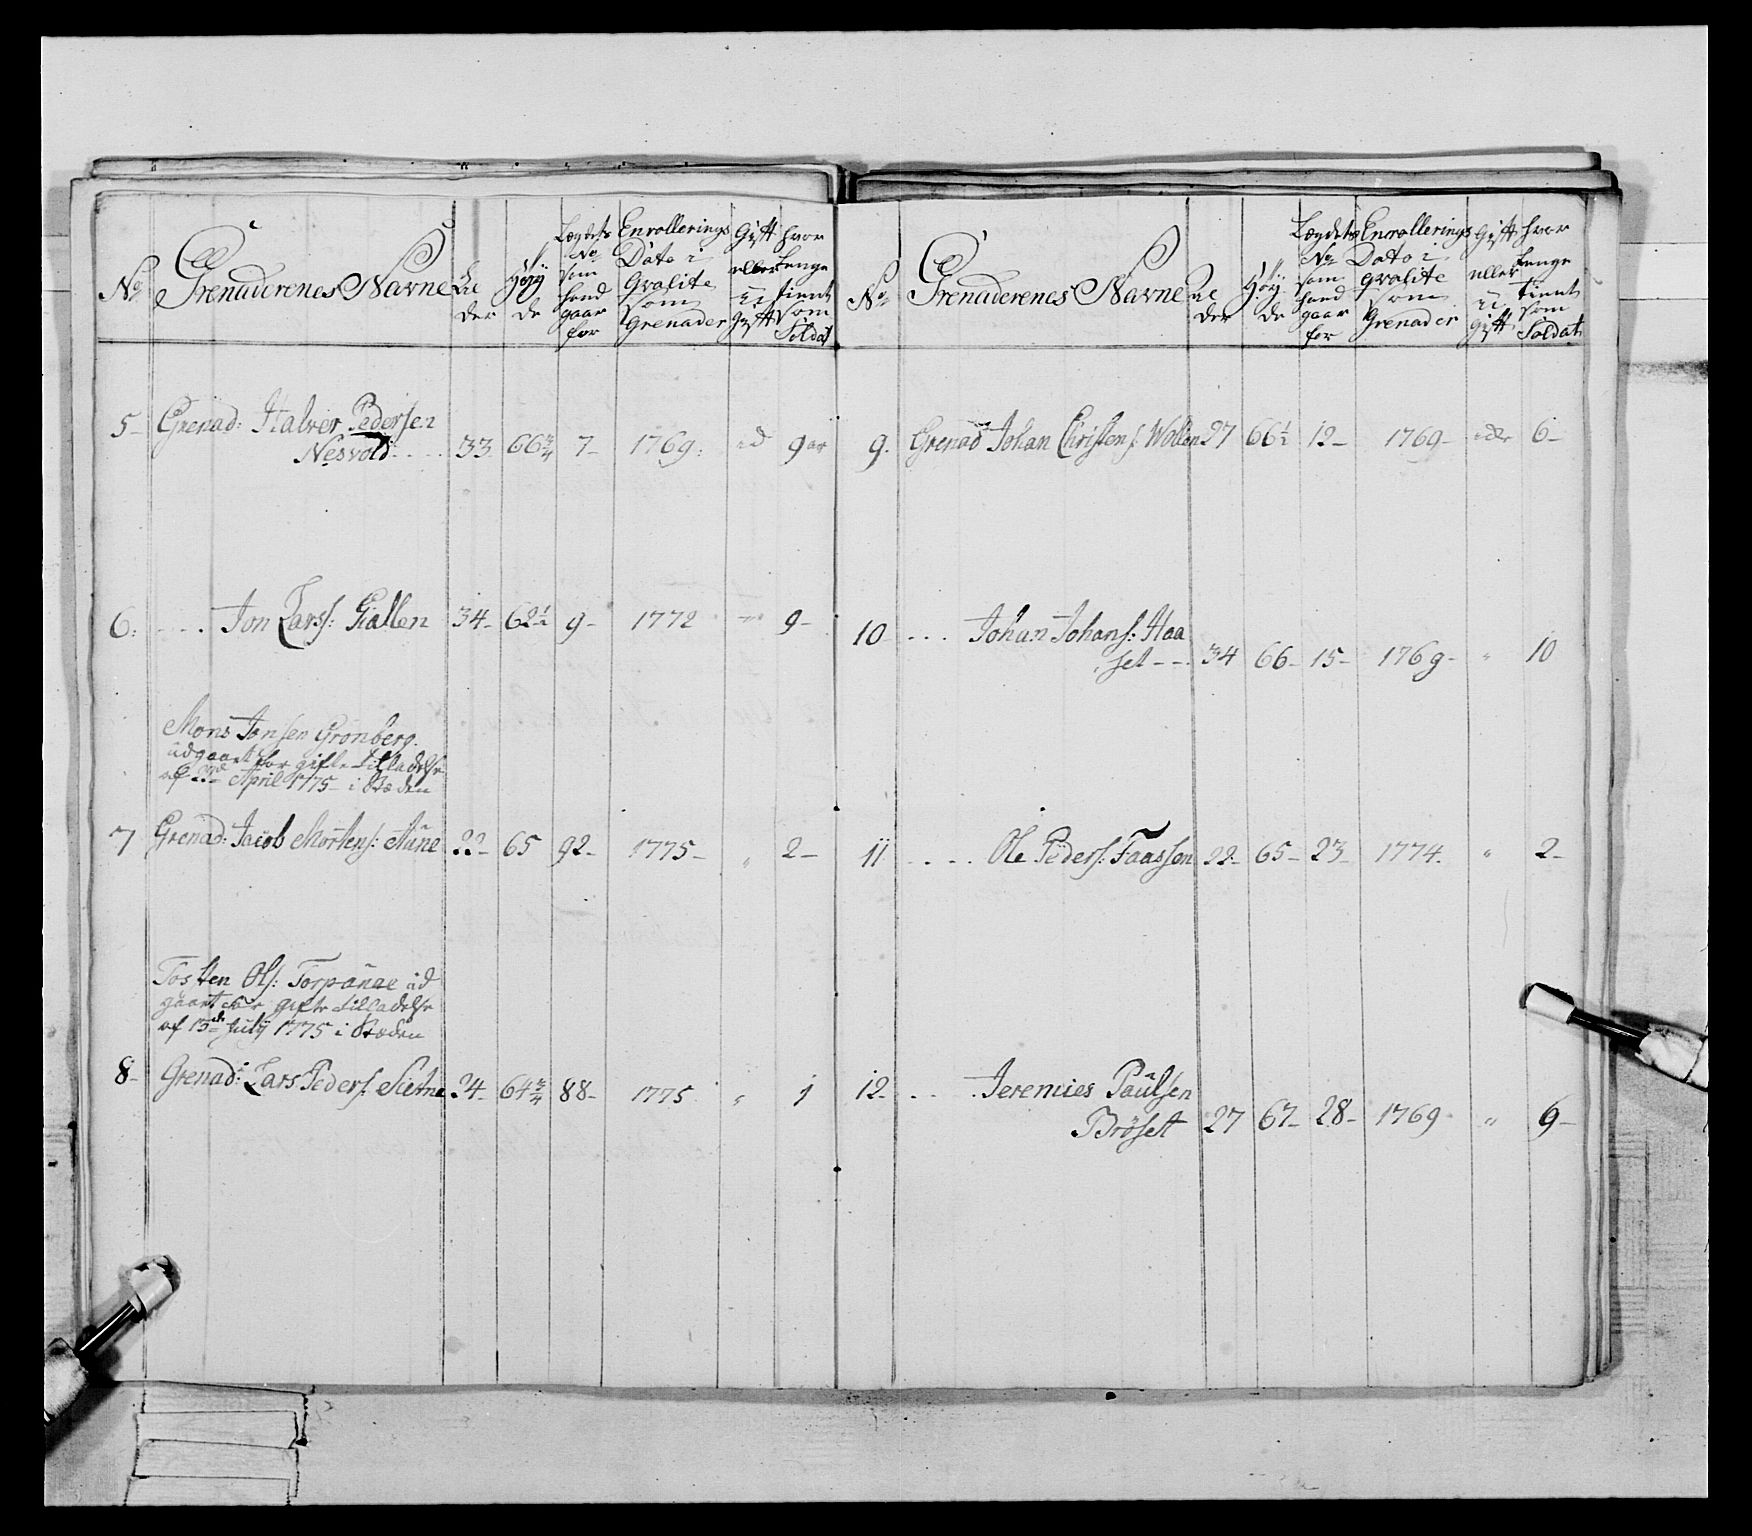 No
Grenaderenes Navne
Al
der
Höÿ
de
Lægdets
No
som
hand
gaar
for
Enrollerings
Dato i
qvalite
som
Grenader
Gift
eller
u
Gift
hvor
Lenge
tient
som
Soldat
5- Grenad: Halver Pedersen
Nesvold 33 66¾ 7- 1769: 9 aar
6: Jon Lars: Giallen 34- 62½ 9- 1772 9-
Mons Jonsen Grönberg
udgaaet for gifte tilladelse
April 1775 i Stæden
7 Grenad: Jacob Mortens: Aune 22- 65 92- 1775- " 2-
Tosten Ols: Torpaune ud
gaaet for gifte tilladelse
af 15de Julÿ 1775 i Stæden
8- Grenad: Lars Peders: Sætne 24- 64¾ 88- 1775 " 1
No
Grenaderenes Navne
Al
der
Höÿ
de
Lægdets
No
som
hand
gaar
for
Enrollerings
Dato i
qvalite
som
Grenader
Gift
eller
u
Gift
hvor
Lenge
tient
som
Soldat
9. Grenad Johan Christens: Wollen 27 66½ 12- 1769- 6-
10- Johan Johans: Haa
set - - 34 66- 15- 1769- " 10
11 Ole Peders: Faassen 22- 65- 23- 1774. " 2-
12- Jeremies Paulsen
Bröset 27 67- 28- 1769- " 6-